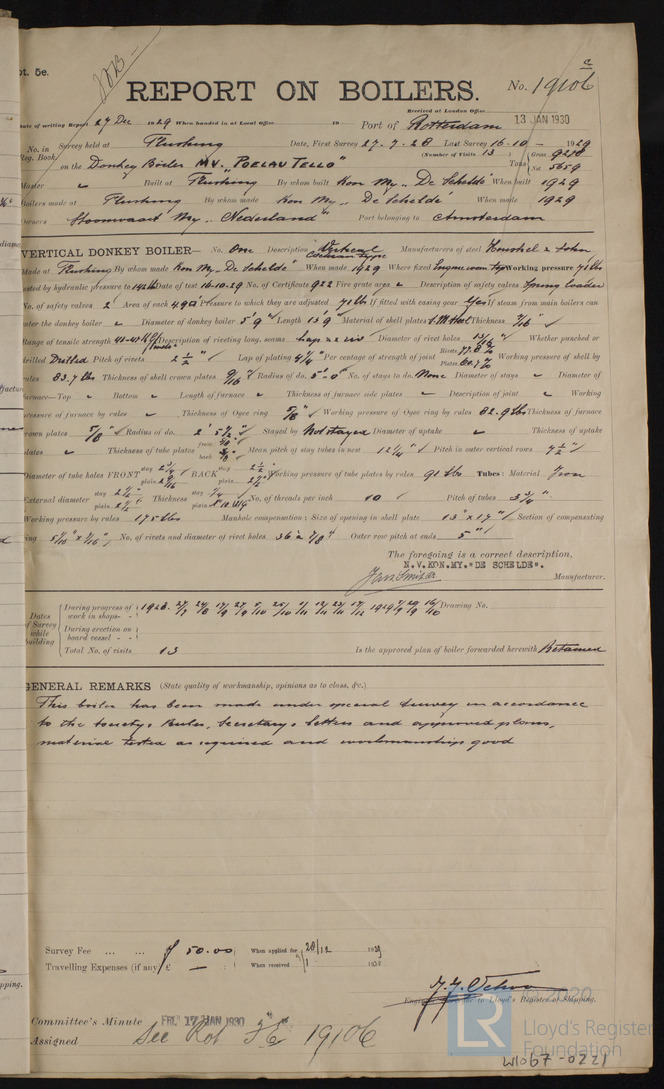 pt. 5e.
c
REPORT ON BOILERS.
No. 19106
Received at London Office
13 JAN 1930
Date of writing Report 27 Dec 1929 When handed in at Local Office 19 Port of Rotterdam
No. in Survey held at Flushing Date, First Survey 27-7-28 Last Survey 16-10- 1929
Reg. Book. (Number of Visits 13)
on the Donkey Boiler M.V. "POELAU TELLO" Tons Gross 9218 Net 5659
Master " Built at Flushing By whom built Kon My. "De Schelde" When built 1929
Boilers made at Flushing By whom made Kon My. "De Schelde" When made 1929
Owners Stoomvaart My. "Nederland" Port belonging to Amsterdam
VERTICAL DONKEY BOILER— No. One Description Vertical Cochran type Manufacturers of steel Henschel & Sohn
Made at Flushing By whom made Kon My. "De Schelde" When made 1929 Where fixed Engineroom top Working pressure 71 lbs
tested by hydraulic pressure to 142 lbs Date of test 16-10-29 No. of Certificate 922 Fire grate area " Description of safety valves Spring loaded
No. of safety valves 2 Area of each 4.90" Pressure to which they are adjusted 71 lbs If fitted with easing gear Yes If steam from main boilers can
enter the donkey boiler " Diameter of donkey boiler 5' 9" Length 13' 9" Material of shell plates S.M. Steel Thickness 7/16"
Range of tensile strength 41-47 Description of riveting long. seams Diameter of rivet holes 13/16" Whether punched or
drilled Drilled Pitch of rivets 2 1/2" Lap of plating 4 1/4" Per centage of strength of joint Rivets 77.8% Plate 62.7% Working pressure of shell by
rules 83.7 lbs Thickness of shell crown plates 9/16" Radius of do. 5'-0" No. of stays to do. None Diameter of stays " Diameter of
furnace—Top " Bottom " Length of furnace " Thickness of furnace side plates " Description of joint " Working
pressure of furnace by rules " Thickness of Ogee ring 5/8" Working pressure of Ogee ring by rules 82.9 lbs Thickness of furnace
crown plates 5/8" Radius of do. 2' 5 1/2" Stayed by Not stayed Diameter of uptake " Thickness of uptake
plates " Thickness of tube plates front back Mean pitch of stay tubes in nest 12 1/4" Pitch in outer vertical rows 7 1/2"
Diameter of tube holes FRONT stay 2 3/4 plain 2 9/16 BACK stay 2 1/2 plain 2 1/2 Working pressure of tube plates by rules 91 lbs Tubes: Material Iron
External diameter stay 2 1/2" plain 2 1/2" Thickness stay 1/4 plain No. of threads per inch 10 Pitch of tubes 3 3/4"
Working pressure by rules 175 lbs Manhole compensation: Size of opening in shell plate 13" x 17" Section of compensating
ring No. of rivets and diameter of rivet holes 36 a 7/8" Outer row pitch at ends 5"
The foregoing is a correct description,
N.V. KON. MY. "DE SCHELDE".
Jan Smit
Manufacturer.
Dates of Survey while building
During progress of work in shops - - 1928. 27/7 24/8 17/9 27/9 9/10 25/10 7/11 12/11 23/11 17/12 1929 7/9 29/9 16/10 Drawing No.
During erection on board vessel - -
Total No. of visits 13 Is the approved plan of boiler forwarded herewith Retained
GENERAL REMARKS (State quality of workmanship, opinions as to class, &c.)
This boiler has been made under special survey in accordance
to the Society's Rules, Secretary's letters and approved plans,
material tested as required and workmanship good
Survey Fee ... ... f 50.00 When applied for 28/12 1929
Travelling Expenses (if any) £ — When received 1930
Engineer Surveyor to Lloyd's Register of Shipping.
Committee's Minute FRI. 17 JAN 1930
Assigned See Rot F.E. 19106
© 2020
LR
Lloyd's Register
Foundation
W1067-0221